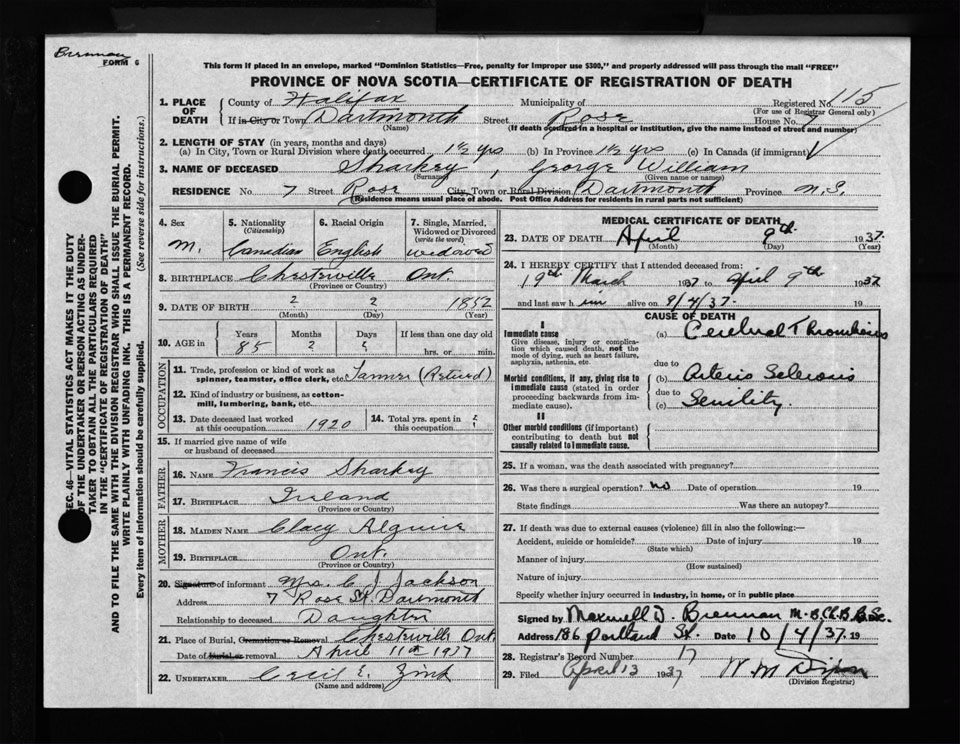 Brennan
FORM 6
This form if placed in an envelope, marked "Dominion Statistics—Free, penalty for improper use $300," and properly addressed will pass through the mail "FREE"
PROVINCE OF NOVA SCOTIA—CERTIFICATE OF REGISTRATION OF DEATH
SEC. 46—VITAL STATISTICS ACT MAKES IT THE DUTY
OF THE UNDERTAKER OR PERSON ACTING AS UNDER-
TAKER TO OBTAIN ALL THE PARTICULARS REQUIRED
IN THE "CERTIFICATE OF REGISTRATION OF DEATH"
AND TO FILE THE SAME WITH THE DIVISION REGISTRAR WHO SHALL ISSUE THE BURIAL PERMIT.
WRITE PLAINLY WITH UNFADING INK. THIS IS A PERMANENT RECORD.
Every item of information should be carefully supplied. (See reverse side for instructions.)
1. PLACE OF DEATH County of Halifax Municipality of Registered No. 115
(For use of Registrar General only)
If in City or Town Dartmouth Street Rose House No. 7
(Name) (If death occurred in a hospital or institution, give the name instead of street and number)
2. LENGTH OF STAY (in years, months and days)
(a) In City, Town or Rural Division where death occurred 1 1/2 yrs (b) In Province 1 1/2 yrs (c) In Canada (if immigrant)
3. NAME OF DECEASED Sharkey, George William
(Surname) (Given name or names)
RESIDENCE No. 7 Street Rose City, Town or Rural Division Dartmouth Province N.S.
(Residence means usual place of abode. Post Office Address for residents in rural parts not sufficient)
4. Sex 5. Nationality 6. Racial Origin 7. Single, Married,
(Citizenship) Widowed or Divorced
(write the word)
M. Canadian English widowed
8. BIRTHPLACE Chesterville Ont.
(Province or Country)
9. DATE OF BIRTH 2 2 1852
(Month) (Day) (Year)
10. AGE in Years Months Days If less than one day old
85 2 hrs. or min.
OCCUPATION
11. Trade, profession or kind of work as
spinner, teamster, office clerk, etc. (Retired)
12. Kind of industry or business, as cotton-
mill, lumbering, bank, etc.
13. Date deceased last worked
at this occupation 1920
14. Total yrs. spent in
this occupation
15. If married give name of wife
or husband of deceased
FATHER
16. NAME Francis Sharkey
17. BIRTHPLACE Ireland
(Province or Country)
MOTHER
18. MAIDEN NAME Clacy Alguire
19. BIRTHPLACE Ont.
(Province or Country)
20. Signature of informant Mrs. C J Jackson
Address 7 Rose St. Dartmouth
Relationship to deceased Daughter
21. Place of Burial, Cremation or Removal Chesterville Ont.
Date of burial or removal April 11th 1937
22. UNDERTAKER Cecil E. Zink
(Name and address)
MEDICAL CERTIFICATE OF DEATH
23. DATE OF DEATH April 9th 1937.
(Month) (Day) (Year)
24. I HEREBY CERTIFY that I attended deceased from:
19th March 1937 to April 9th 1937
and last saw him alive on 9/4/37. 19
CAUSE OF DEATH
I
Immediate cause (a) Cerebral Thrombosis
Give disease, injury or complica-
tion which caused death, not the
mode of dying, such as heart failure,
asphyxia, asthenia, etc.
due to
Morbid conditions, if any, giving rise to
immediate cause (stated in order
proceeding backwards from im-
mediate cause).
(b) Arterio Sclerosis
due to
(c) Senility.
II
Other morbid conditions (if important)
contributing to death but not
causally related to immediate cause.
25. If a woman, was the death associated with pregnancy?
26. Was there a surgical operation? no Date of operation 19
State findings Was there an autopsy?
27. If death was due to external causes (violence) fill in also the following:—
Accident, suicide or homicide? Date of injury 19
(State which)
Manner of injury
(How sustained)
Nature of injury
Specify whether injury occurred in industry, in home, or in public place
Signed by Maxwell J. Brennan M.B.Ch.B. B.Sc.
Address 186 Portland St. Date 10/4/37. 19
28. Registrar's Record Number 17
29. Filed April 13 1937
(Division Registrar)